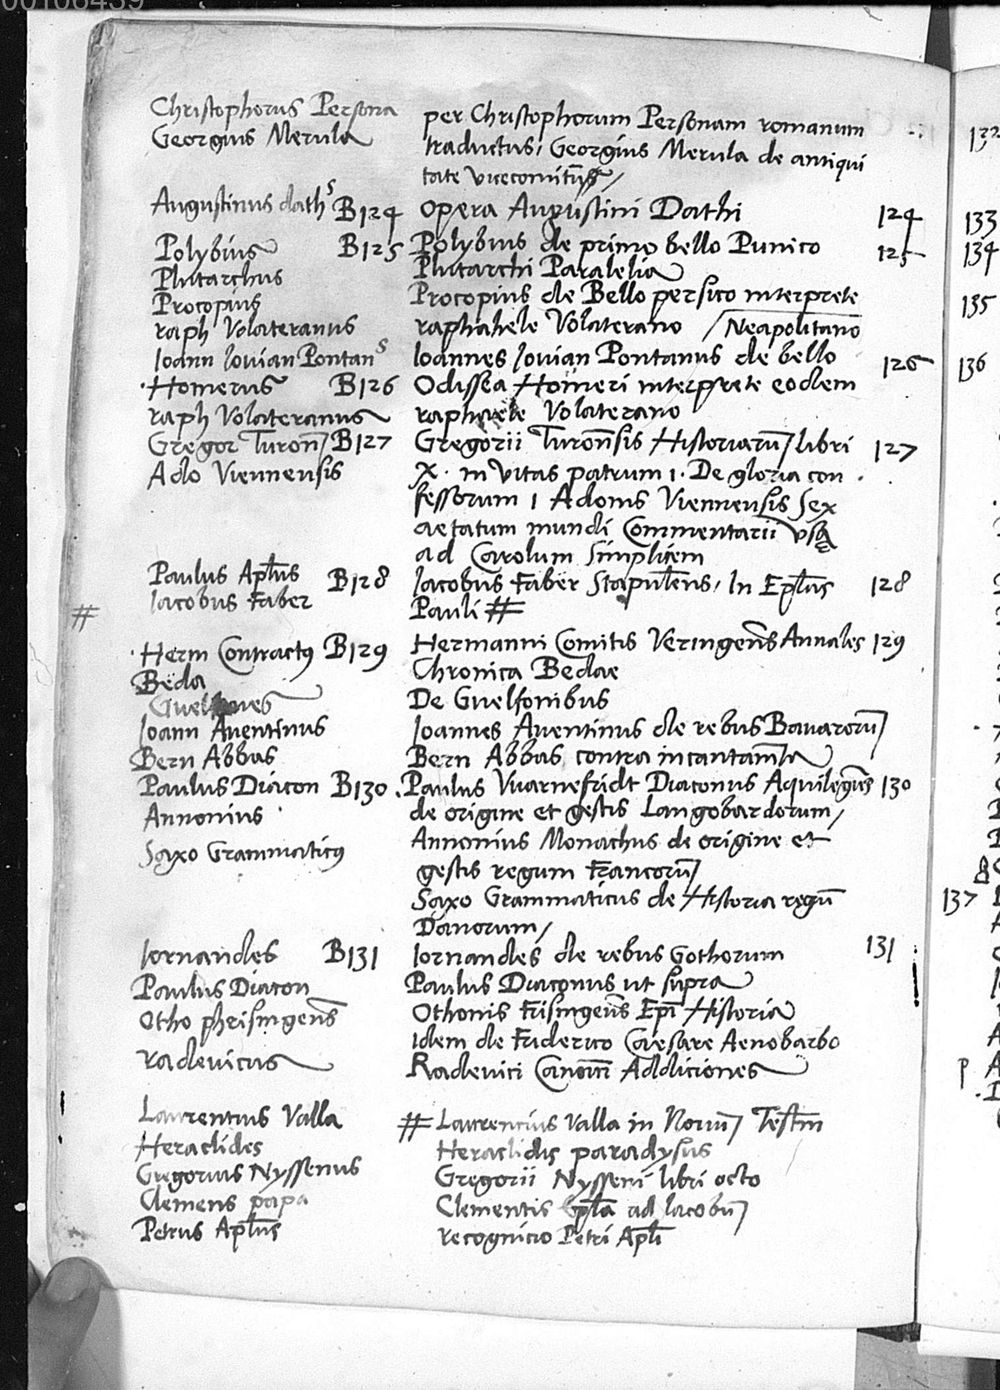 00106439
Christophorus Persona per Christophorum Personam romanum 132
Georgius Merula traductus, Georgius Merula de antiqui
tate vicecomitũ
Augustinus dathˢ B124 Opera Augustini Dathi 124 133
Polybius B125 Polybius de primo bello Punico 125 134
Plutarchus Plutarchi Paralelia
Procopius Procopius de Bello persico interprete 135
raph Volateranus raphahele Volaterano / Neapolitano
Ioann Iovian Pontanˢ Ioannes Iovian Pontanus de bello 136
Homerus B126 Odissea Homeri interprete eodem 126
raph Volateranus raphaele Volaterano
Gregor Turoñ B127 Gregorii Turoñsis Historiarũ libri 127
Ado Viennensis X. in vitas patrum 1. De gloria con
fessorum 1 Adonis Viennensis Sex
aetatum mundi Commentarii usq̃
ad Carolum Simplicem
Paulus Apłus B128 Iacobus Faber Stapulens, In Epłas 128
# Iacobus Faber Pauli #
Herm Contractꝰ B129 Hermanni Comitis Veringeñs Annales 129
Beda Chronica Bedae
Guelfones De Guelfonibus
Ioann Aventinus Ioannes Aventinus de rebus Bavarorũ
Bern Abbas Bern Abbas contra incantam̃ta
Paulus Diacon B130 Paulus Vuarnefridt Diaconus Aquilegẽs 130
de origine et gestis Langobardorum,
Annonius Annonius Monachus de origine et
gestis regum Francorũ
Saxo Grammaticꝰ Saxo Grammaticus de Historia regũ 137
Danorum,
Iornandes B131 Iornandes de rebus Gothorum 131
Paulus Diacon Paulus Diaconus ut supra
Otho phrisingeñs Othonis Frisingeñs Epĩ Historia
Idem de Friderico Caesare Aenobarbo
Radevicus Radevici Canoñi Addiciones
Laurentius Valla # Laurencius Valla in Novũ Testm̃
Heraclides Heraclidis paradysus
Gregorius Nyssenus Gregorii Nysseni libri octo
Clemens papa Clementis Epła ad Iacobũ
Petrus Apłus recognicio Petri Apłi